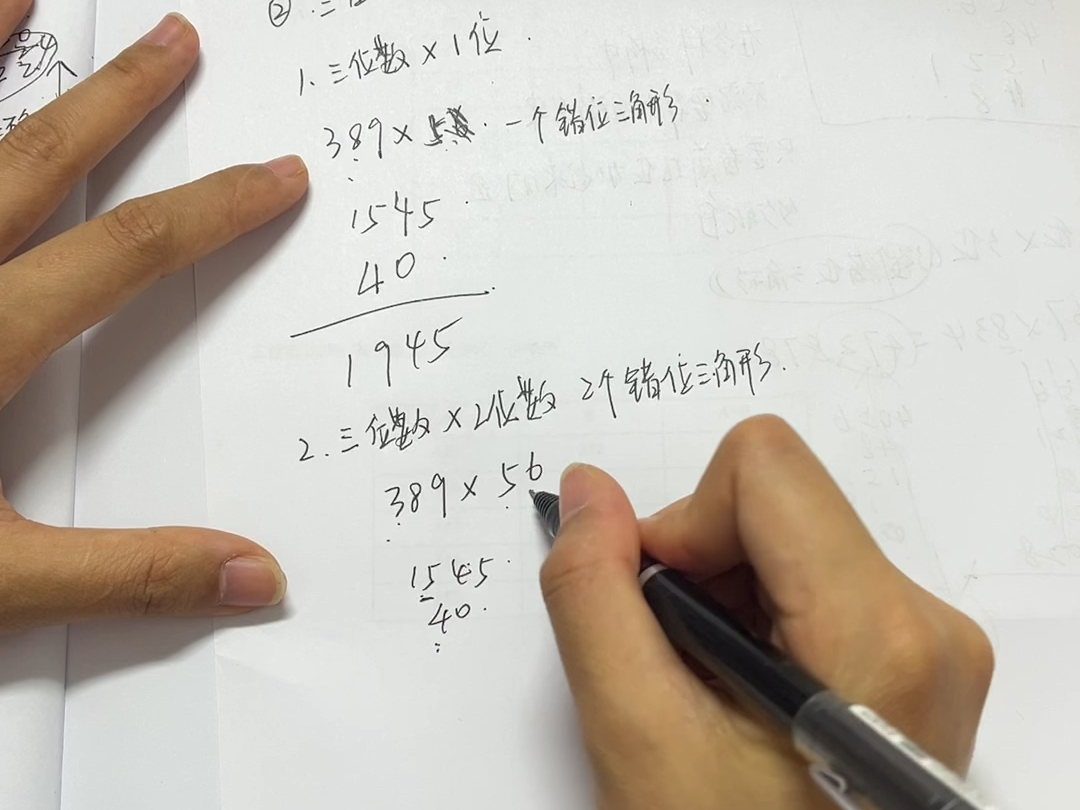 ② 三位
1. 三位数 × 1位.
389 × 5. 一个错位三角形.
1545
40
1945
2. 三位数 × 2位数 2个错位三角形.
389 × 56
1545
40